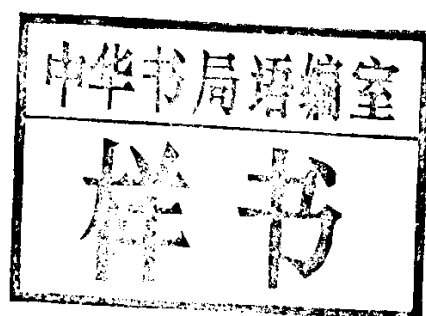 中华书局语编室
样书